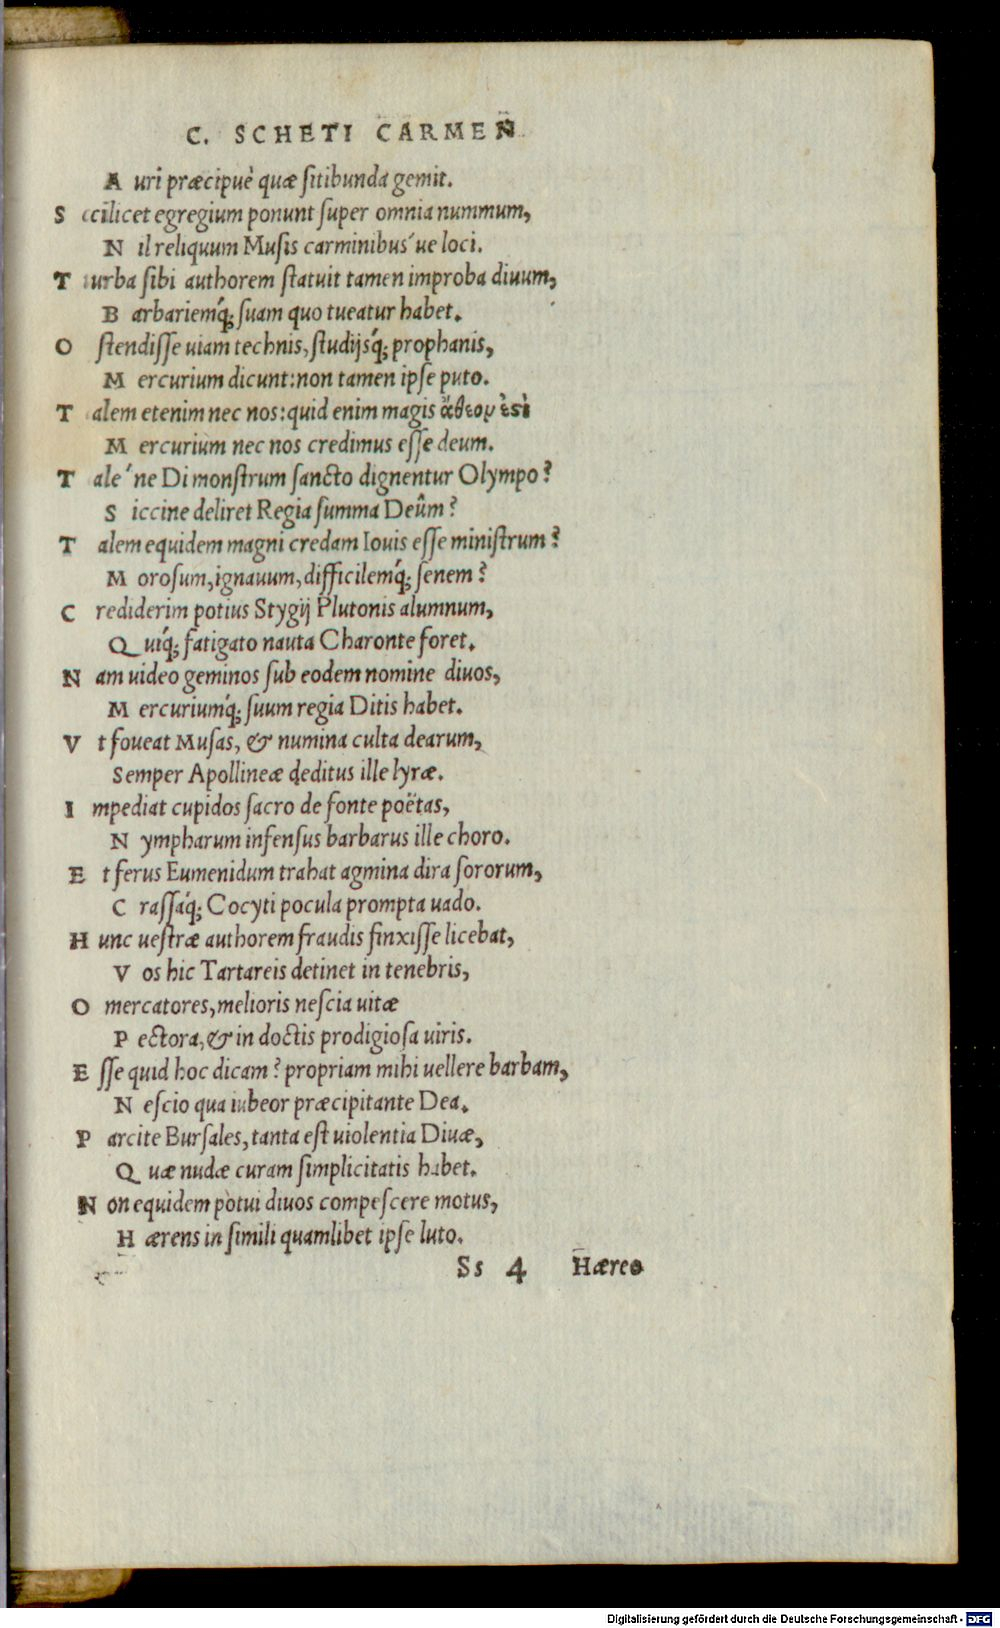 C. SCHETI CARMEN
Auri præcipuè quæ ſitibunda gemit.
Scilicet egregium ponunt ſuper omnia nummum,
Nil reliquum Muſis carminibus´ue loci.
Turba ſibi authorem ſtatuit tamen improba diuum,
Barbariemq́; ſuam quo tueatur habet.
Oſtendiſſe uiam technis, ſtudijsq́; prophanis,
Mercurium dicunt: non tamen ipſe puto.
Talem etenim nec nos: quid enim magis ἄθεον ἐσὶ
Mercurium nec nos credimus eſſe deum.
Tale´ne Di monſtrum ſancto dignentur Olympo?
Siccine deliret Regia ſumma Deûm?
Talem equidem magni credam Iouis eſſe miniſtrum?
Moroſum, ignauum, difficilemq́; ſenem?
Crediderim potius Stygij Plutonis alumnum,
Quiq́; fatigato nauta Charonte foret.
Nam uideo geminos ſub eodem nomine diuos,
Mercuriumq́; ſuum regia Ditis habet.
Vt foueat Muſas, & numina culta dearum,
Semper Apollineæ deditus ille lyræ.
Impediat cupidos ſacro de fonte poëtas,
Nympharum infenſus barbarus ille choro.
Et ferus Eumenidum trahat agmina dira ſororum,
Craſſáq; Cocyti pocula prompta uado.
Hunc ueſtræ authorem fraudis finxiſſe licebat,
Vos hic Tartareis detinet in tenebris,
O mercatores, melioris neſcia uitæ
Pectora, & in doctis prodigioſa uiris.
Eſſe quid hoc dicam? propriam mihi uellere barbam,
Neſcio qua iubeor præcipitante Dea.
Parcite Burſales, tanta eſt uiolentia Diuæ,
Quæ nudæ curam ſimplicitatis habet.
Non equidem potui diuos compeſcere motus,
Hærens in ſimili quamlibet ipſe luto.
Ss 4 Hæreo
Digitalisierung gefördert durch die Deutsche Forschungsgemeinschaft - DFG